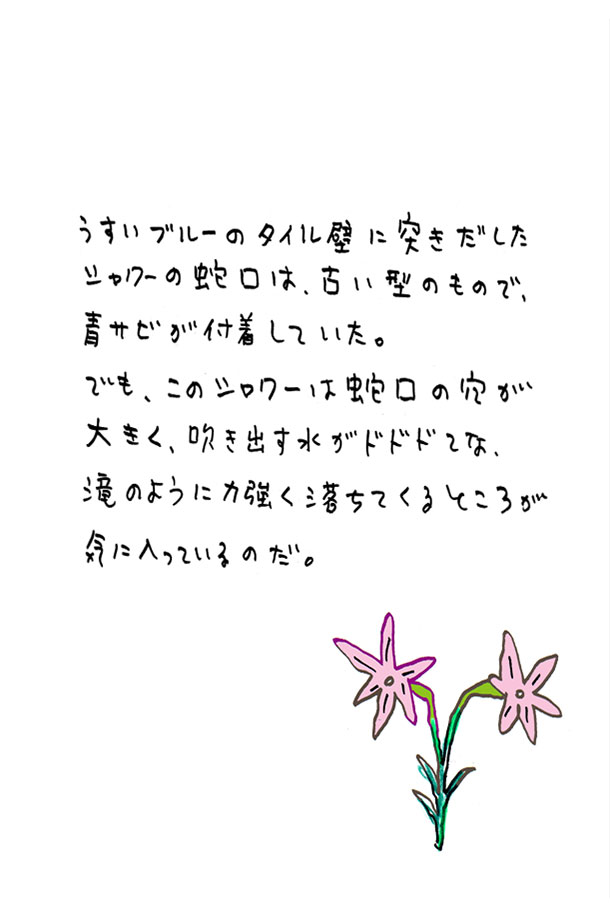 うすいブルーのタイル壁に突きだした
シャワーの蛇口は、古い型のもので、
青サビが付着していた。
でも、このシャワーは蛇口の穴が
大きく、吹き出す水がドドドてな、
滝のように力強く落ちてくるところが
気に入っているのだ。